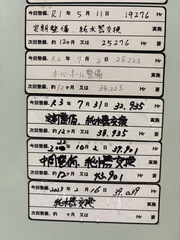 今回整備、 R1 年 5 月 11 19276 Hr
定期整備、給水器交換 実施
次回整備、約 12ヶ月 又は 25276 Hr 要
今回整備、 R2 年 7 月 2 28223 Hr
オーバーホール整備 実施
次回整備、約 12ヶ月 又は 34223 Hr 要
今回整備、 R3 年 7 月 31 32.935 Hr
定期整備、給水器交換 実施
次回整備、約 12ヶ月 又は 38.935 Hr 要
今回整備、 2022 年 10 月 2 37.901 Hr
中間整備、給水器交換 実施
次回整備、約 12ヶ月 又は 43.901 Hr 要
今回整備、 2023 年 2 月 16 39.019 Hr
給水器交換 実施
次回整備、約 ヶ月 又は Hr 要